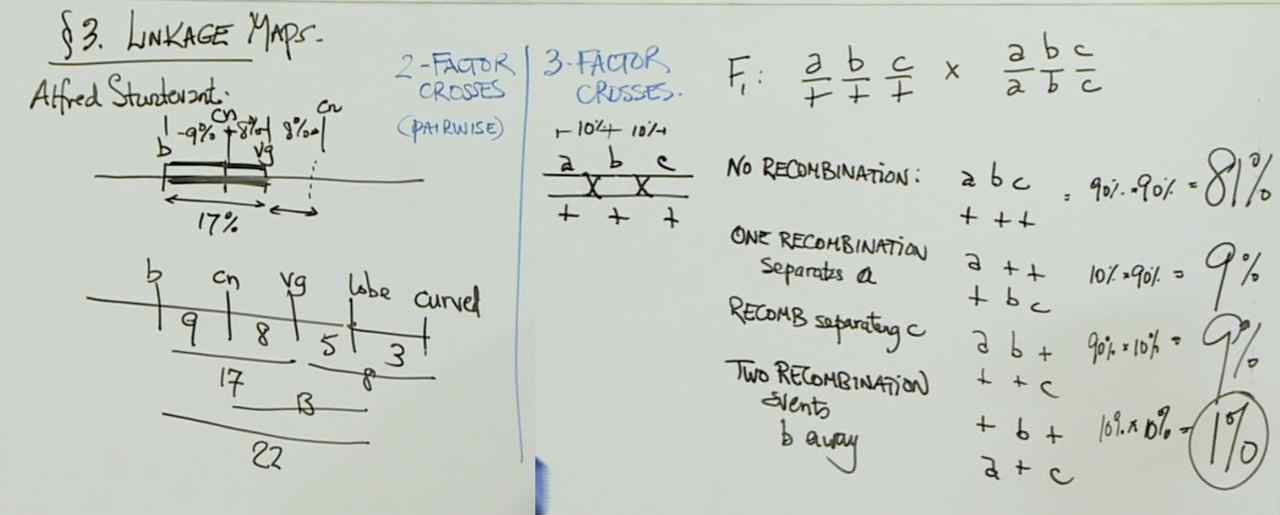 §3. LINKAGE MAPS.
Alfred Sturtevant.
b -9% cn 8% vg 8% cn
17%
b cn vg lobe curved
9 8 5 3
17 8
13
22
2-FACTOR
CROSSES
(PAIRWISE)
3-FACTOR
CROSSES.
10% 10%
a b c
+ + +
F1: a b c × a b c
+ + + a b c
NO RECOMBINATION: a b c = 90%·90% = 81%
+ + +
ONE RECOMBINATION
separates a
a + + 10%×90% = 9%
+ b c
RECOMB separating c
a b + 90%×10% = 9%
+ + c
TWO RECOMBINATION
events
b away
+ b + 10%×10% = 1%
a + c